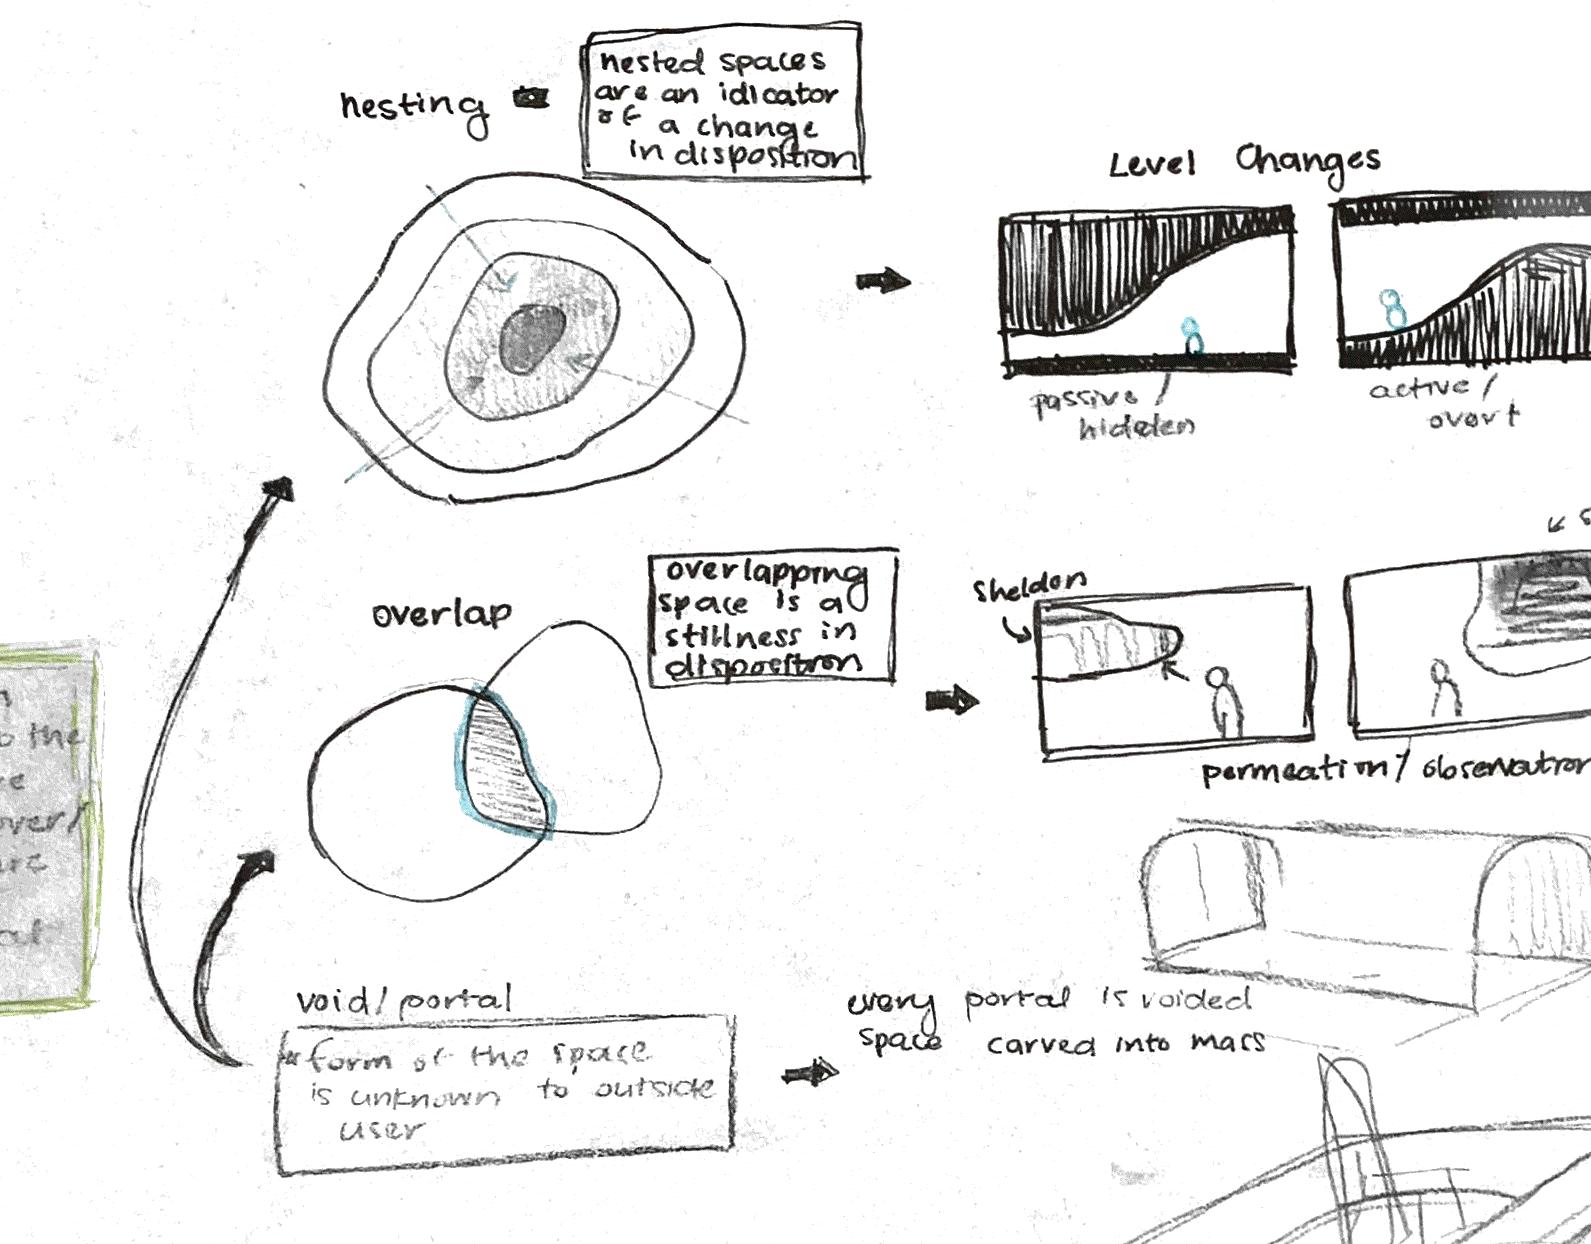 nesting
nested spaces
are an idicator
of a change
in disposition
Level Changes
passive /
hidden
active /
overt
overlap
overlapping
space is a
stillness in
disposition
Sheldon
permeation / observation
the
over/
void/portal
*form of the space
is unknown to outside
user
every portal is voided
space carved into mass